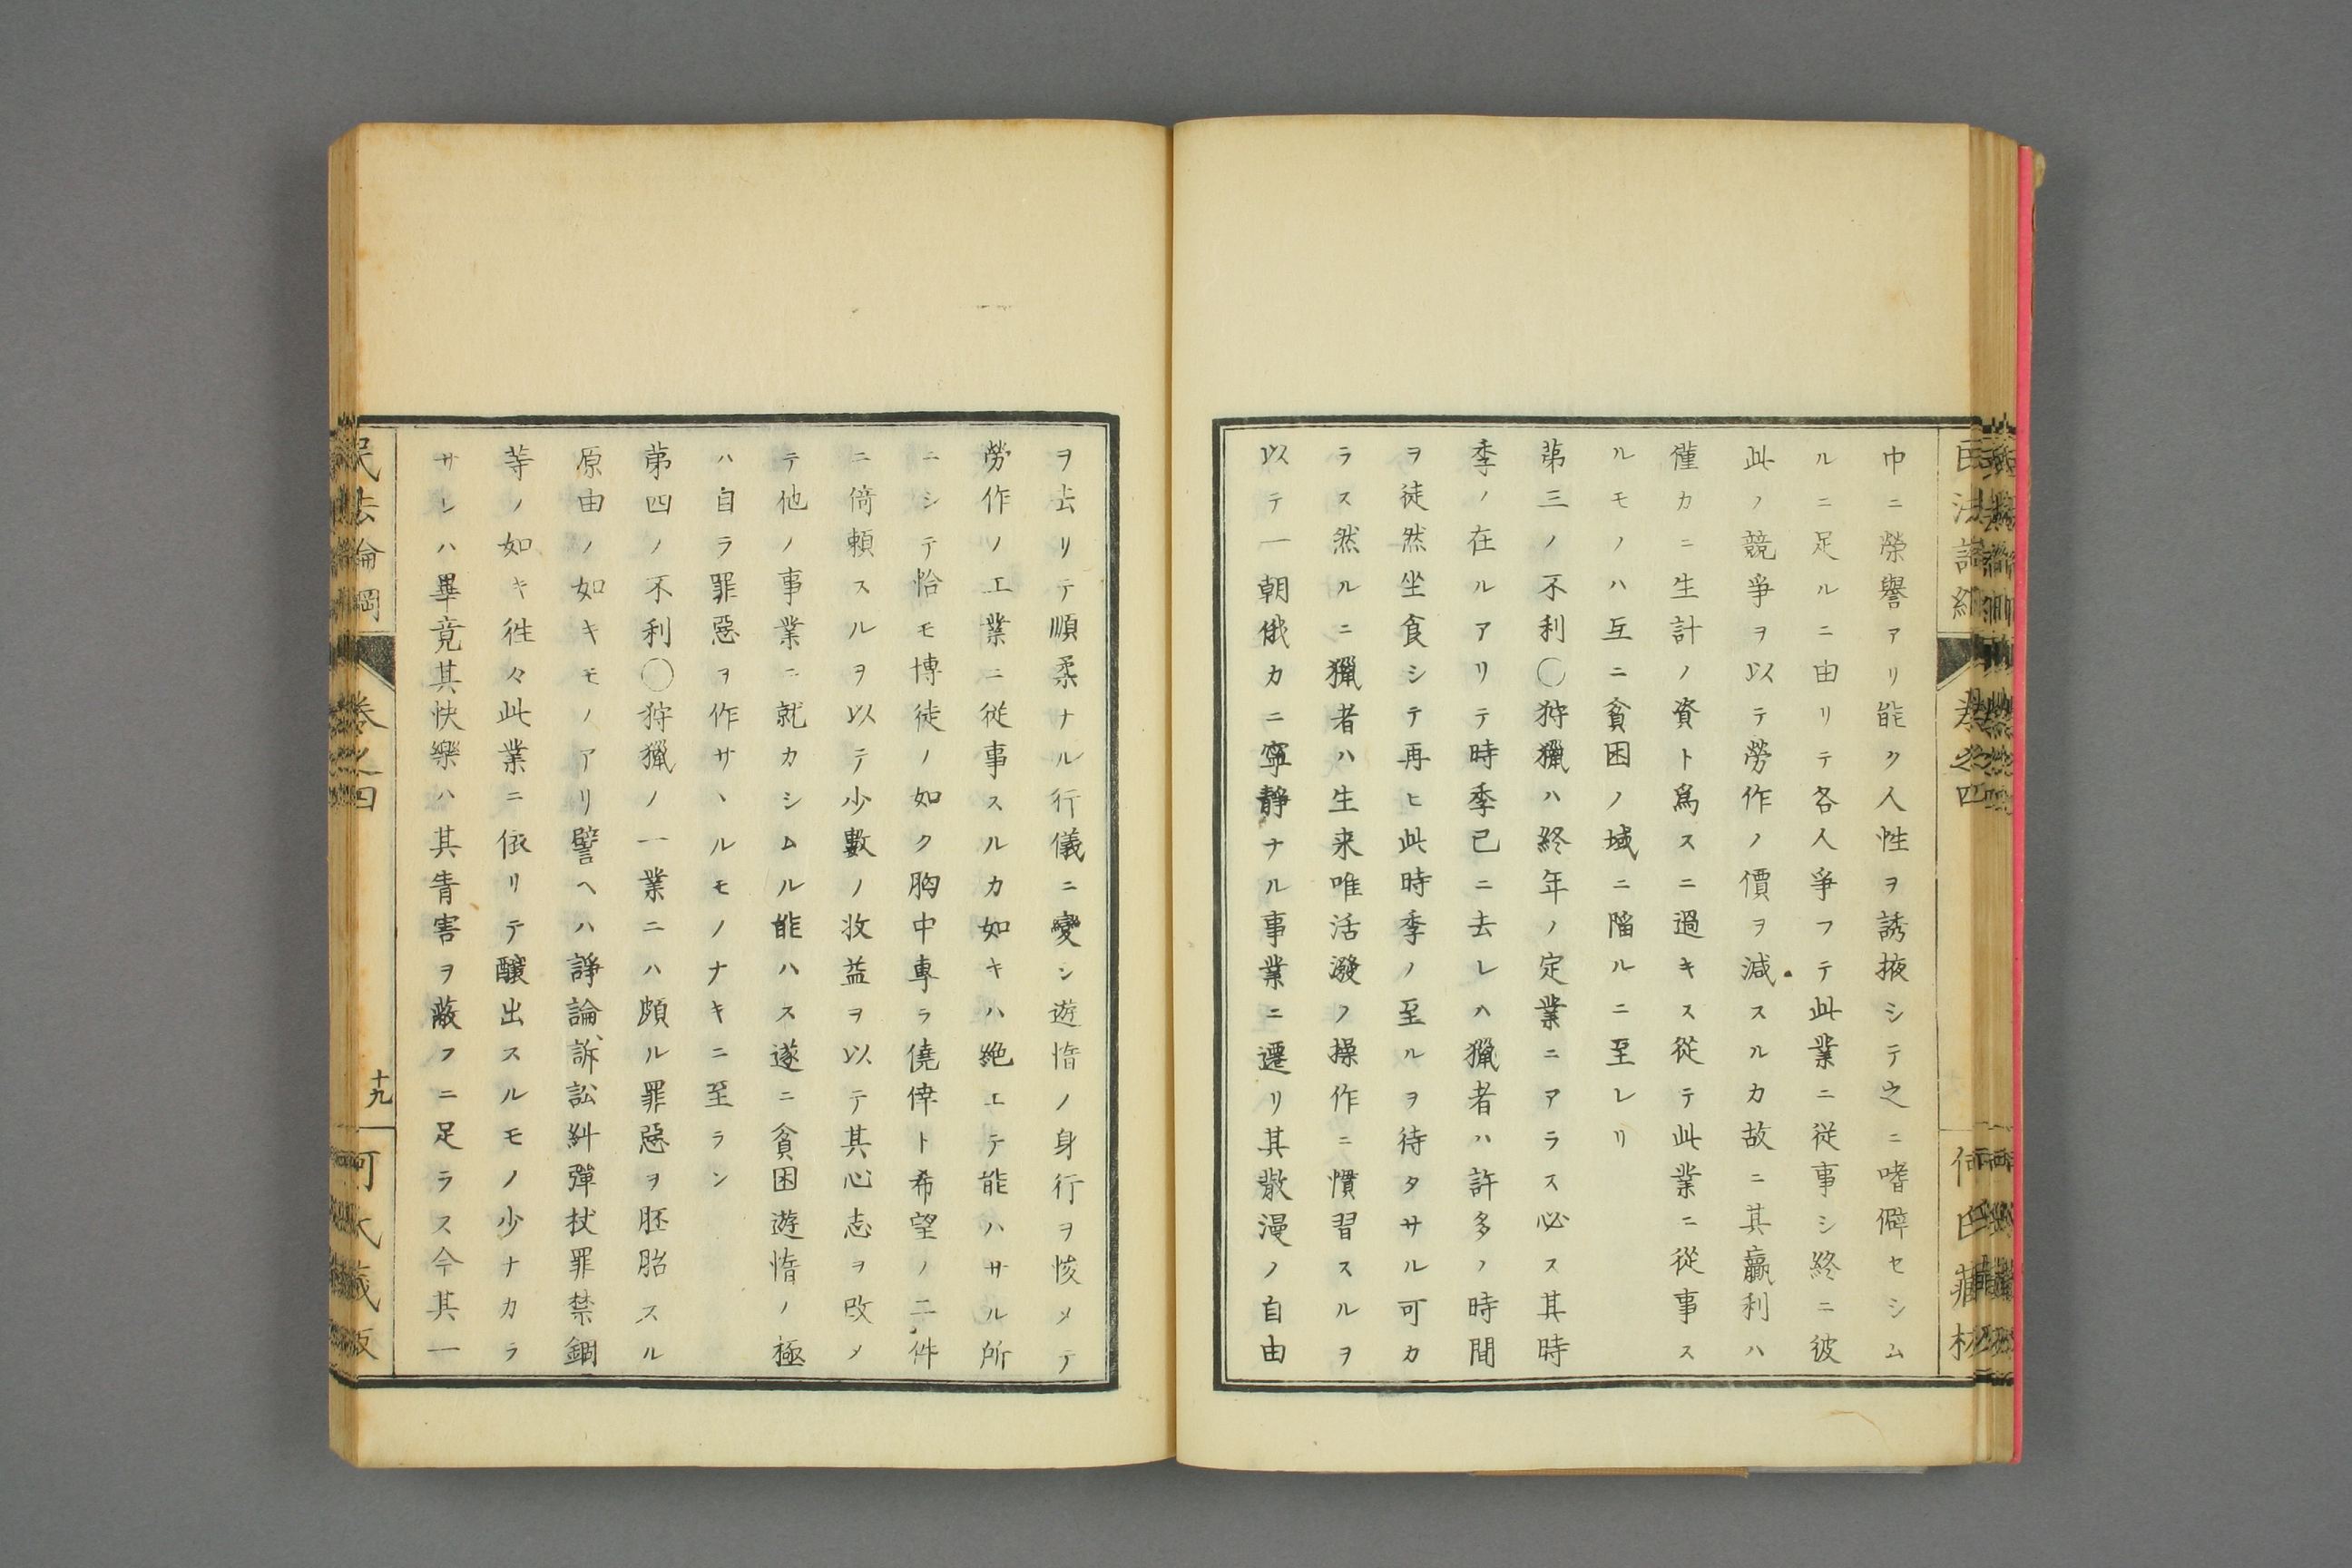 中ニ榮譽アリ能ク人性ヲ誘掖シテ之ニ嗜僻セシム
ルニ足ルニ由リテ各人爭フテ此業ニ從事シ終ニ彼
此ノ競爭ヲ以テ勞作ノ價ヲ減スルカ故ニ其贏利ハ
僅カニ生計ノ資ト爲スニ過キス從テ此業ニ從事ス
ルモノハ互ニ貧困ノ域ニ陷ルニ至レリ
第三ノ不利〇狩獵ハ終年ノ定業ニアラス必ス其時
季ノ在ルアリテ時季已ニ去レハ獵者ハ許多ノ時間
ヲ徒然坐食シテ再ヒ此時季ノ至ルヲ待タサル可カ
ラス然ルニ獵者ハ生来唯活潑ノ操作ニ慣習スルヲ
以テ一朝俄カニ寧靜ナル事業ニ遷リ其散漫ノ自由
ヲ去リテ順柔ナル行儀ニ變シ遊惰ノ身行ヲ悛メテ
勞作ノ工業ニ従事スルカ如キハ絶エテ能ハサル所
ニシテ恰モ博徒ノ如ク胸中專ラ僥倖ト希望ノ二件
ニ倚頼スルヲ以テ少數ノ收益ヲ以テ其心志ヲ改メ
テ他ノ事業ニ就カシムル能ハス遂ニ貧困遊惰ノ極
ハ自ラ罪惡ヲ作サヽルモノナキニ至ラン
第四ノ不利〇狩獵ノ一業ニハ頗ル罪惡ヲ胚胎スル
原由ノ如キモノアリ譬ヘハ諍論訴訟糾彈杖罪禁錮
等ノ如キ徃々此業ニ依リテ釀出スルモノ少ナカラ
サレハ畢竟其快樂ハ其眚害ヲ蔽フニ足ラス今其一
民法論綱
卷之四
十九
何氏藏版